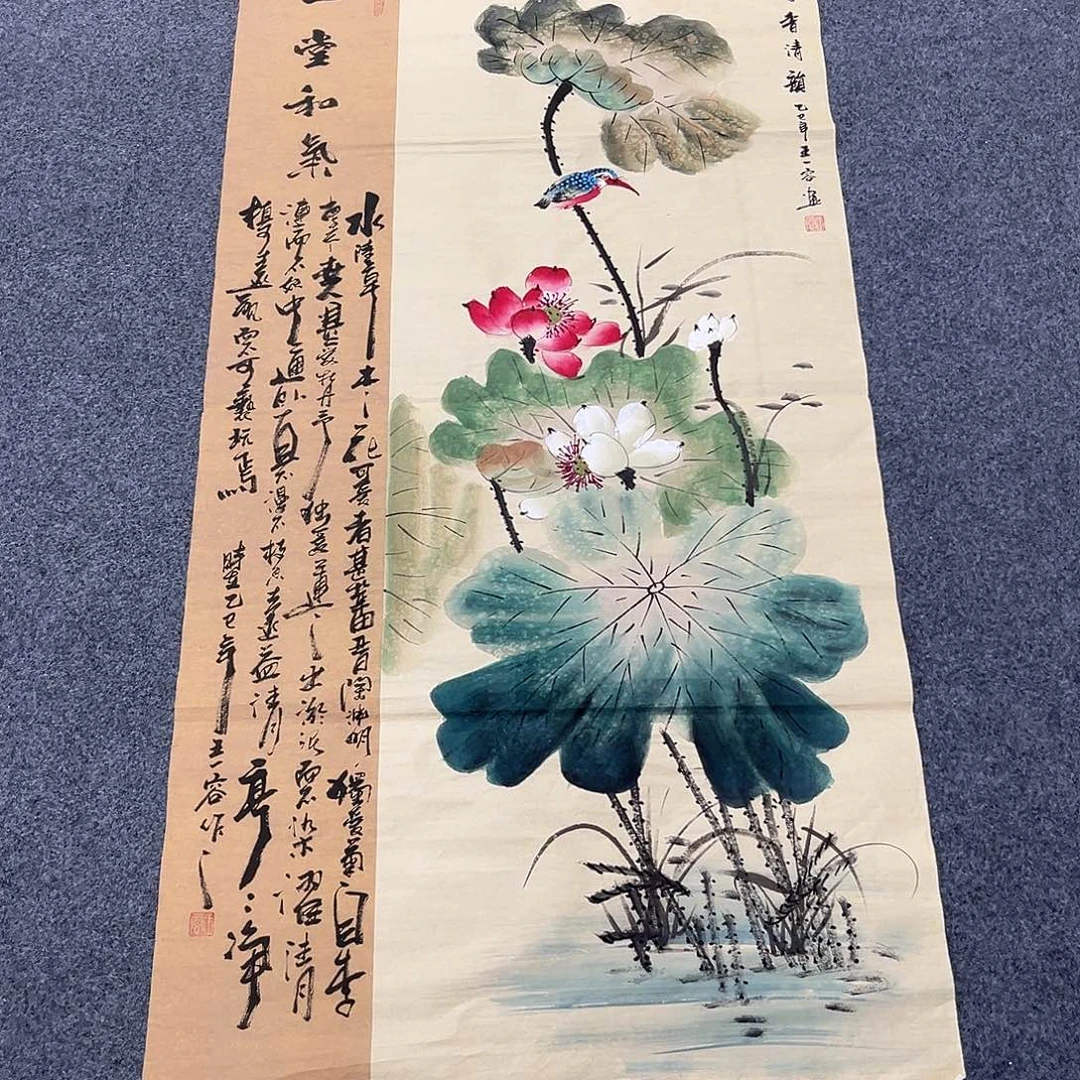 香清韻
乙巳年王一容畫
堂和氣
水陸草木之花可愛者甚蕃昔陶淵明獨愛菊自李
唐來世人甚愛牡丹予独愛蓮之出淤泥而不染濯清
漣而不妖中通外直不漫不枝香遠益清亭〻淨
植遠觀而不可褻玩焉
乙巳年王一容作